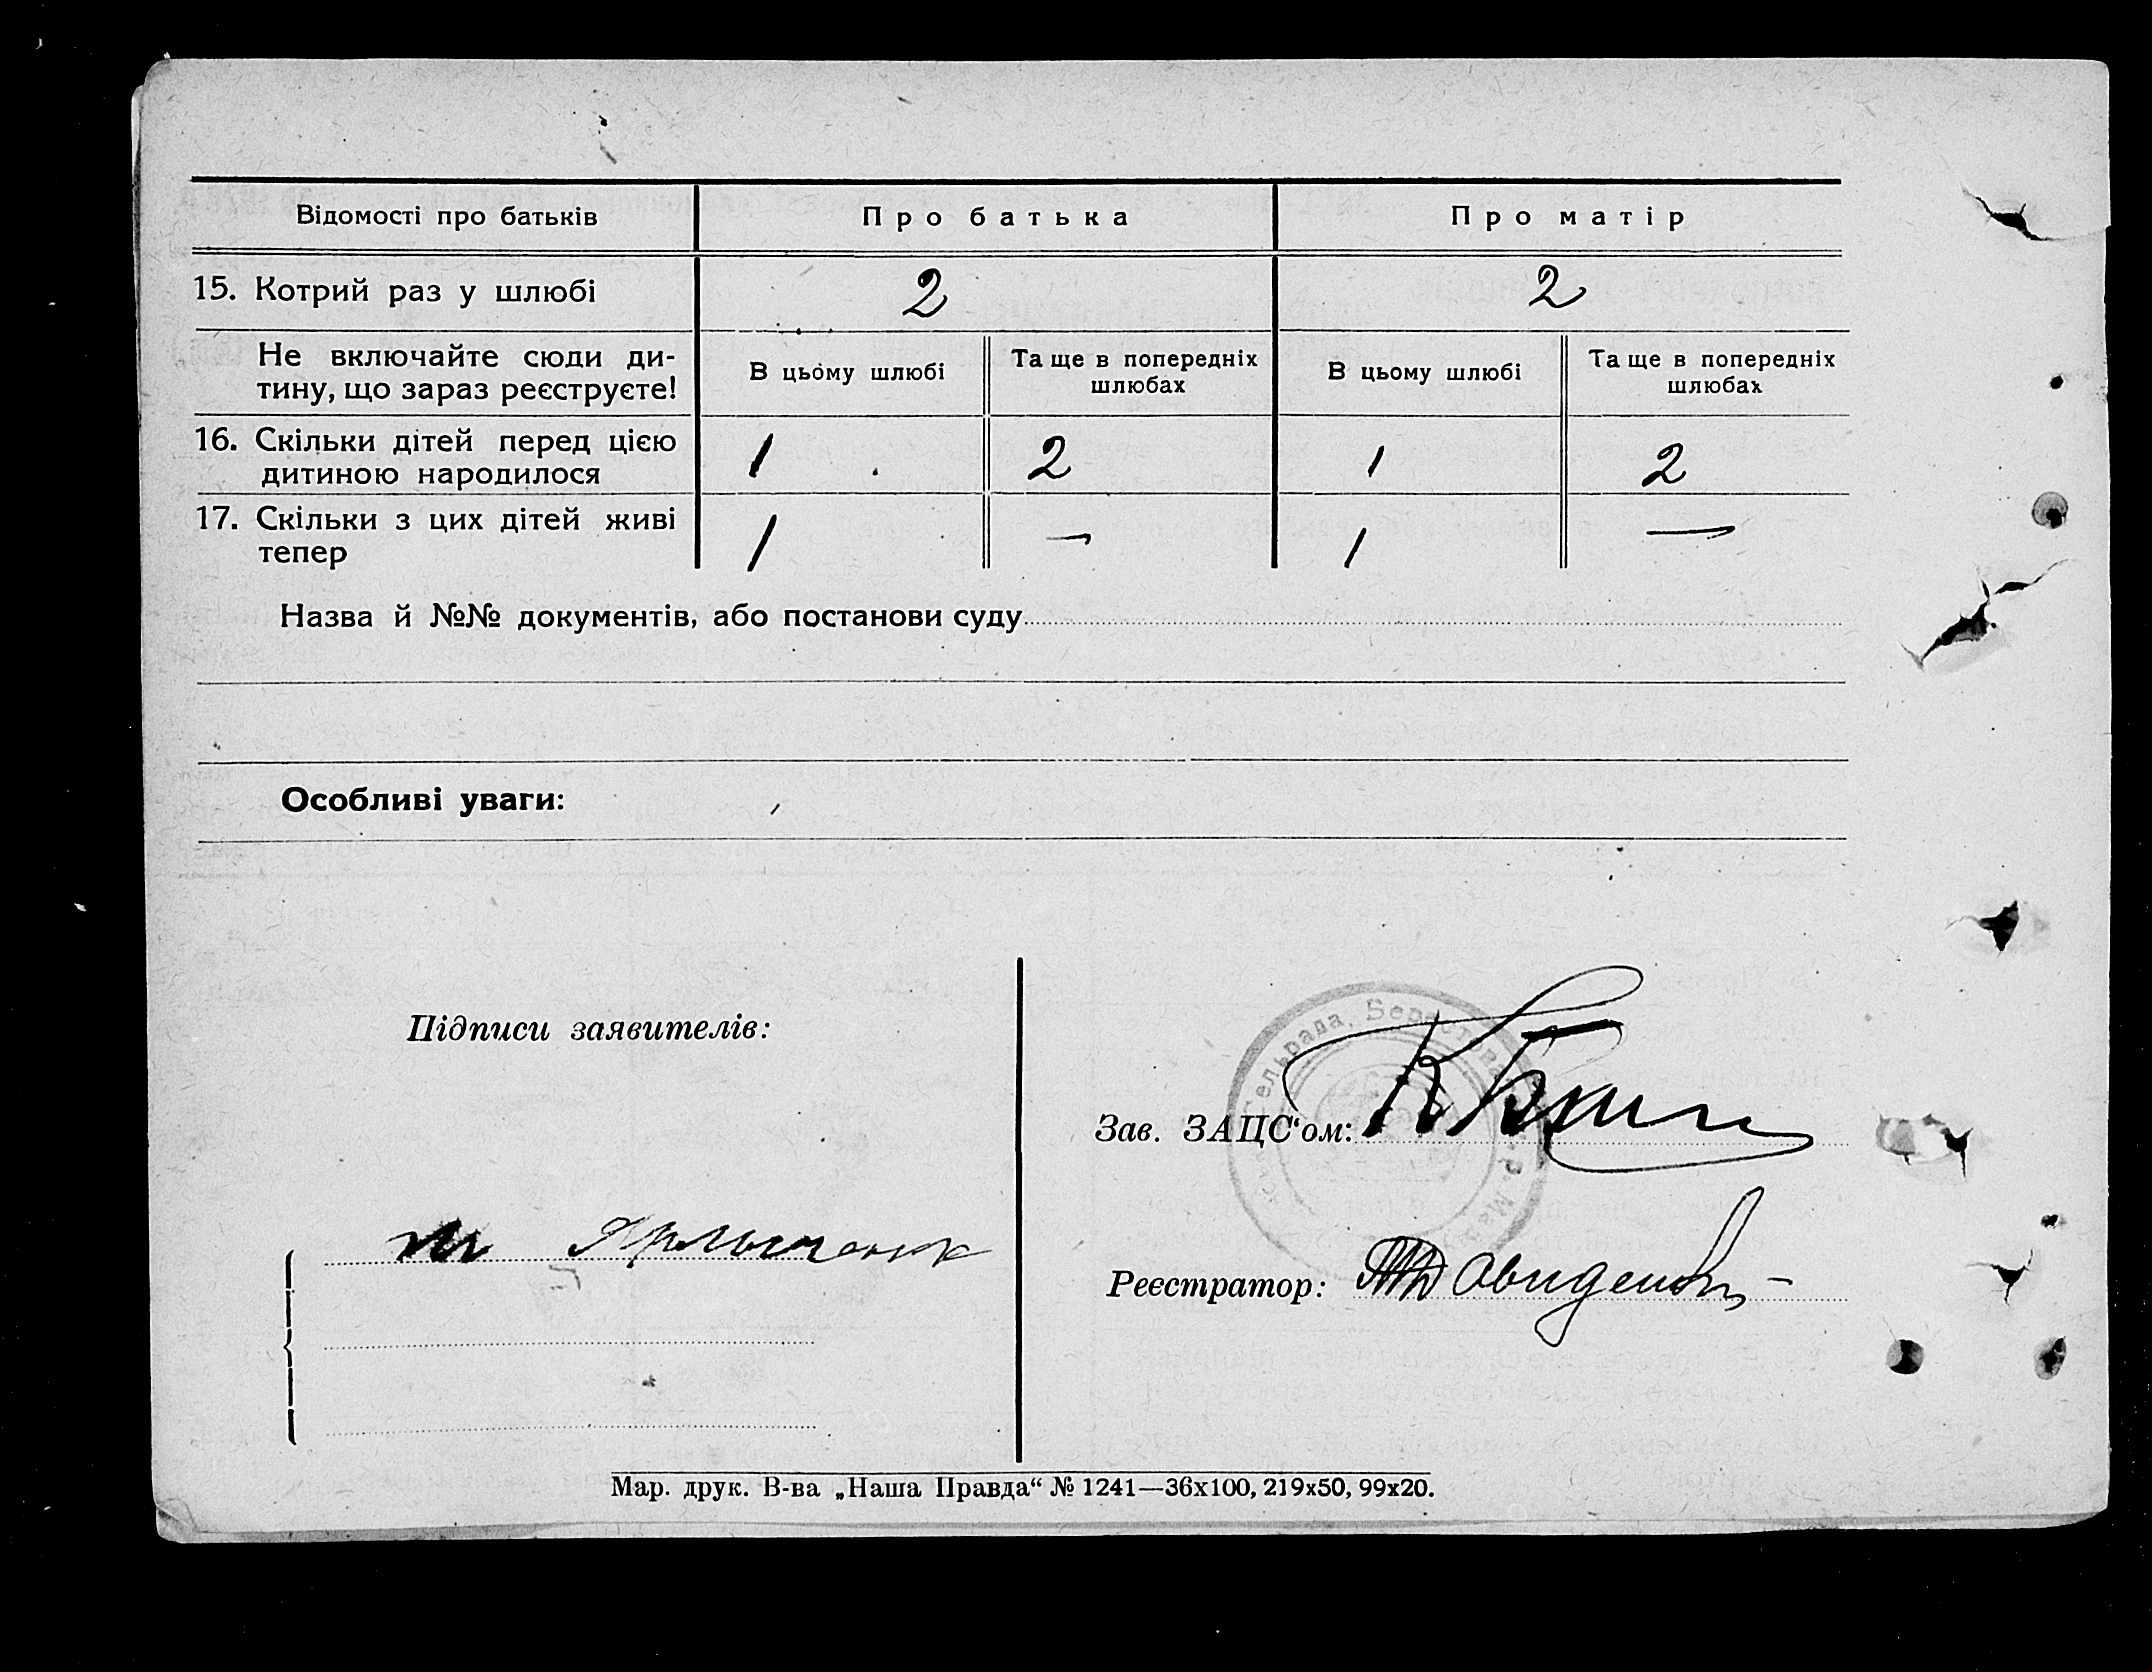 Відомості про батьків Про батька Про матір
15. Котрий раз у шлюбі 2 2
Не включайте сюди ди-
тину, що зараз реєструєте!
В цьому шлюбі Та ще в попередніх шлюбах В цьому шлюбі Та ще в попередніх шлюбах
16. Скільки дітей перед цією
дитиною народилося 1 2 1 2
17. Скільки з цих дітей живі
тепер 1 — 1 —
Назва й №№ документів, або постанови суду
Особливі уваги:
Підписи заявителів:
Зав. ЗАЦС‘ом:
Реєстратор:
Мар. друк. В-ва „Наша Правда“ № 1241—36х100, 219х50, 99х20.